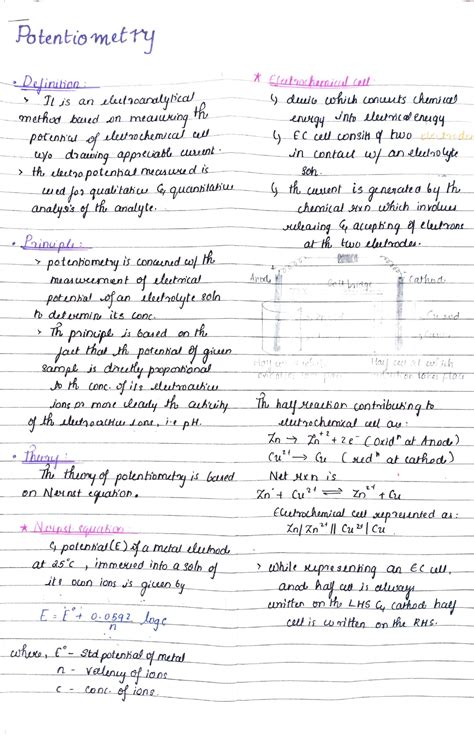 Potentiometry
• Definition:
> It is an electroanalytical
method based on measuring the
potential of electrochemical cell
w/o drawing appreciable current.
> the electro potential measured is
used for qualitative & quantitative
analysis of the analyte.
• Principle:
> potentiometry is concerned w/ the
measurement of electrical
potential of an electrolyte soln
to determine its conc.
> The principle is based on the
fact that the potential of given
sample is directly proportional
to the conc. of its electroactive
ions or more clearly the activity
of the electroactive ions, i.e pH.
• Theory:
The theory of potentiometry is based
on Nernst equation.
★ Nernst equation
↳ potential (E) of a metal electrode
at 25°C, immersed into a soln of
its own ions is given by
E = E° + 0.0592/n logc
where, E° - Std potential of metal
n - valency of ions
c - conc. of ions.
★ Electrochemical cell:
↳ device which converts chemical
energy into electrical energy
↳ EC cell consists of two electrodes
in contact w/ an electrolyte
soln.
↳ the current is generated by the
chemical rxn which involves
releasing & accepting of electrons
at the two electrodes.
Anode Salt bridge Cathode
Half cell at which
The half reaction contributing to
electrochemical cell are:
Zn → Zn⁺² + 2e⁻ (Oxidⁿ at Anode)
Cu²⁺ → Cu (redⁿ at cathode)
Net rxn is
Zn + Cu²⁺ ⇌ Zn²⁺ + Cu
Electrochemical cell represented as:
Zn/Zn²⁺ || Cu²⁺/Cu
> While representing an EC cell,
anode half cell is always
written on the LHS & cathode half
cell is written on the RHS.